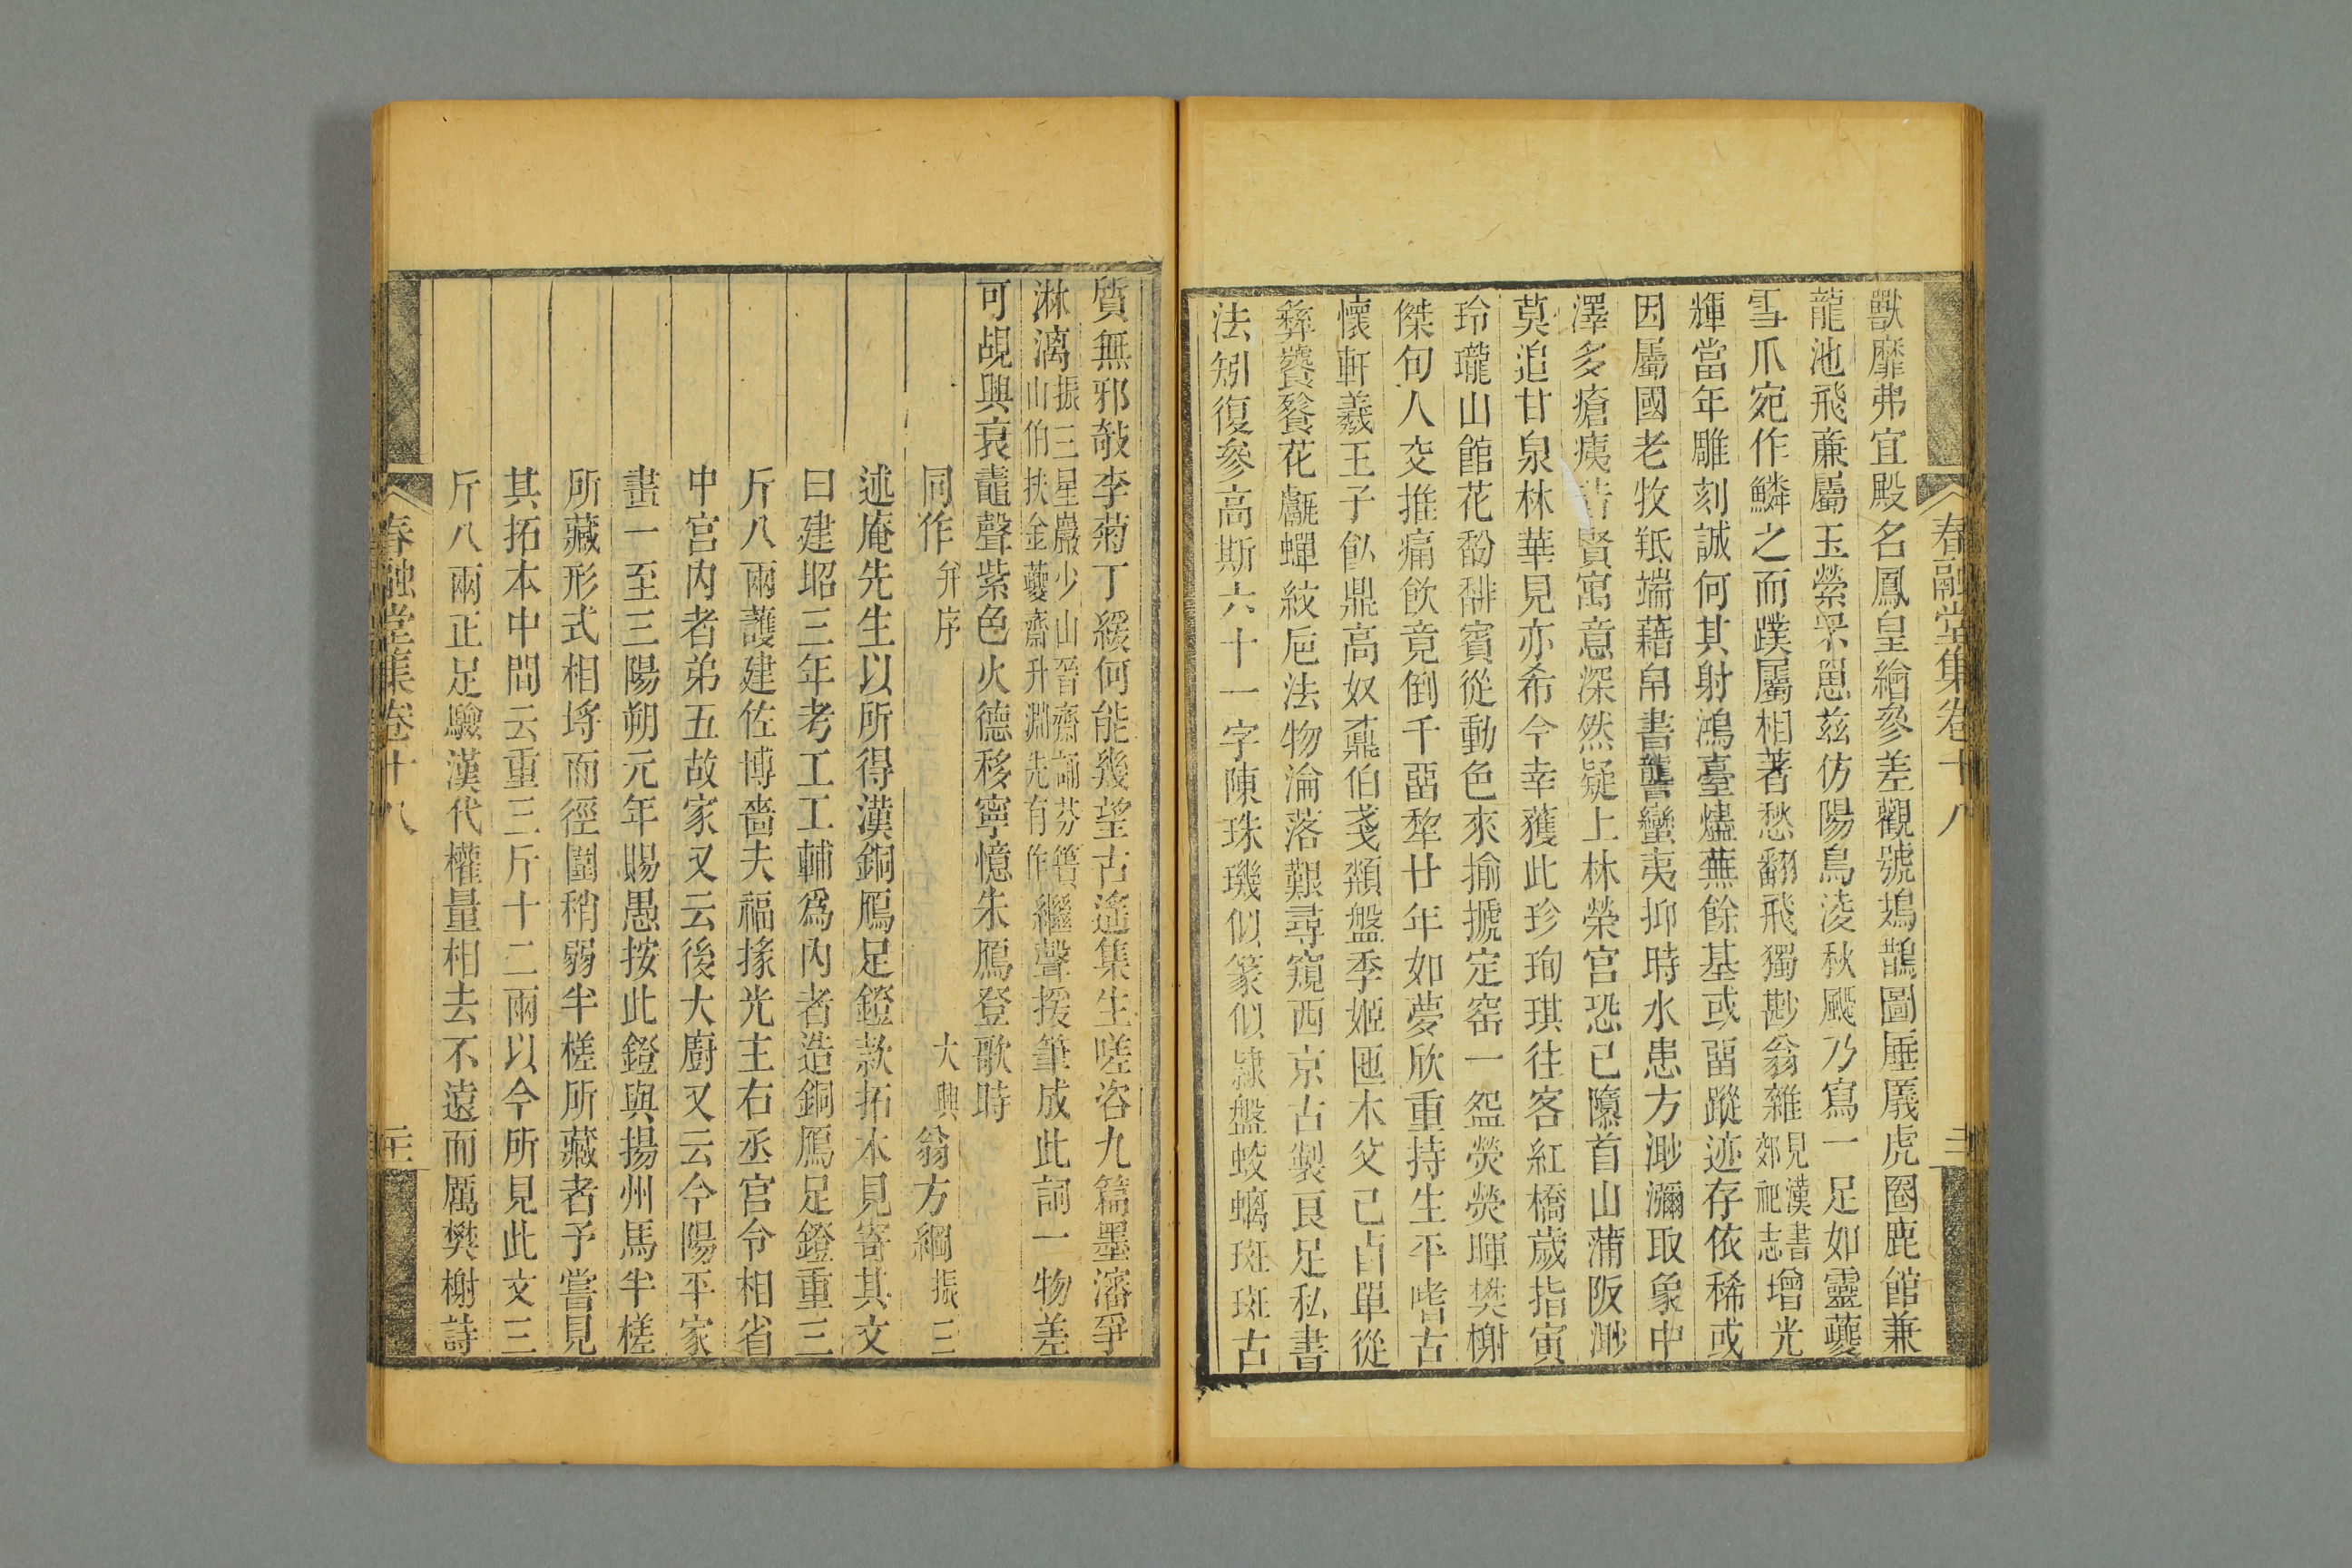 獸靡弗宜殿名鳳皇繪參差觀號鳷鵲圖厜㕒虎圈鹿館兼
龍池飛亷屬玉縈罘罳兹仿陽鳥淩秋颸乃寫一足如靈夔
雪爪宛作鱗之而蹼屬相著愁翻飛獨斟翁雜見漢書郊祀志增光
輝當年雕刻誠何其射鴻臺燼蕪餘基或畱蹤迹存依稀或
因屬國老牧羝端藉帛書讋蠻夷抑時水患方渺瀰取象中
澤多瘡痍昔賢寓意深然疑上林榮宮恐已隳首山蒲阪渺
莫追甘泉林華見亦希今幸獲此珍珣琪往客紅橋歲指寅
玲瓏山館花馚馡賓從動色來揄搋定窑一盌熒熒暉樊榭
傑句人交推痛飲竟倒千噩犂廿年如夢欣重持生平嗜古
懷軒羲王子飤鼎高奴鼒伯戔頮盤季姬匜木父己卣單從
彝饕餮花甗蟬紋巵法物淪落艱尋窺西京古製良足私書
法矧復參高斯六十一字陳珠璣似篆似隷盤蛟螭斑斑古
春融堂集卷十八
質無邪攲李菊丁緩何能幾望古遙集生嗟咨九篇墨瀋爭
淋漓振三星巖少山晉齋誦芬簣山伯扶金夔齋升淵先有作繼聲援筆成此詞一物差
可覘興衰鼃聲紫色火德移寧憶朱鴈登歌時
同作并序 大興翁方綱振三
述庵先生以所得漢銅鴈足鐙款拓本見寄其文
曰建昭三年考工工輔爲內者造銅鴈足鐙重三
斤八兩護建佐博嗇夫福掾光主右丞宮令相省
中宮内者弟五故家又云後大廚又云今陽平家
畫一至三陽朔元年賜愚按此鐙與揚州馬半槎
所藏形式相埒而徑圍稍弱半槎所藏者予嘗見
其拓本中間云重三斤十二兩以今所見此文三
斤八兩正足驗漢代權量相去不遠而厲樊榭詩
春融堂集卷十八